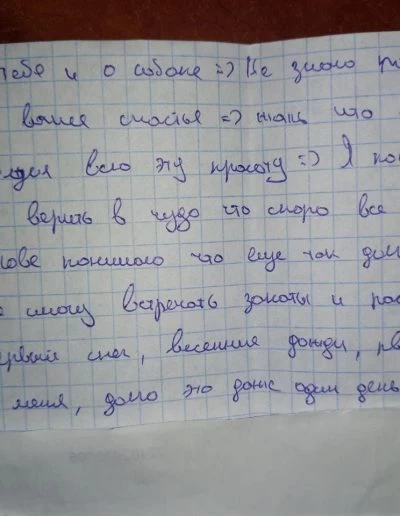 тебе и о собаке =) Не знаю
выше счастья =) жаль что
всю эту красоту =) Я
верить в чудо что скоро все
понимаю что еще так
смогу встречать закаты и
первый снег, весенние дожди,
меня, даже один день